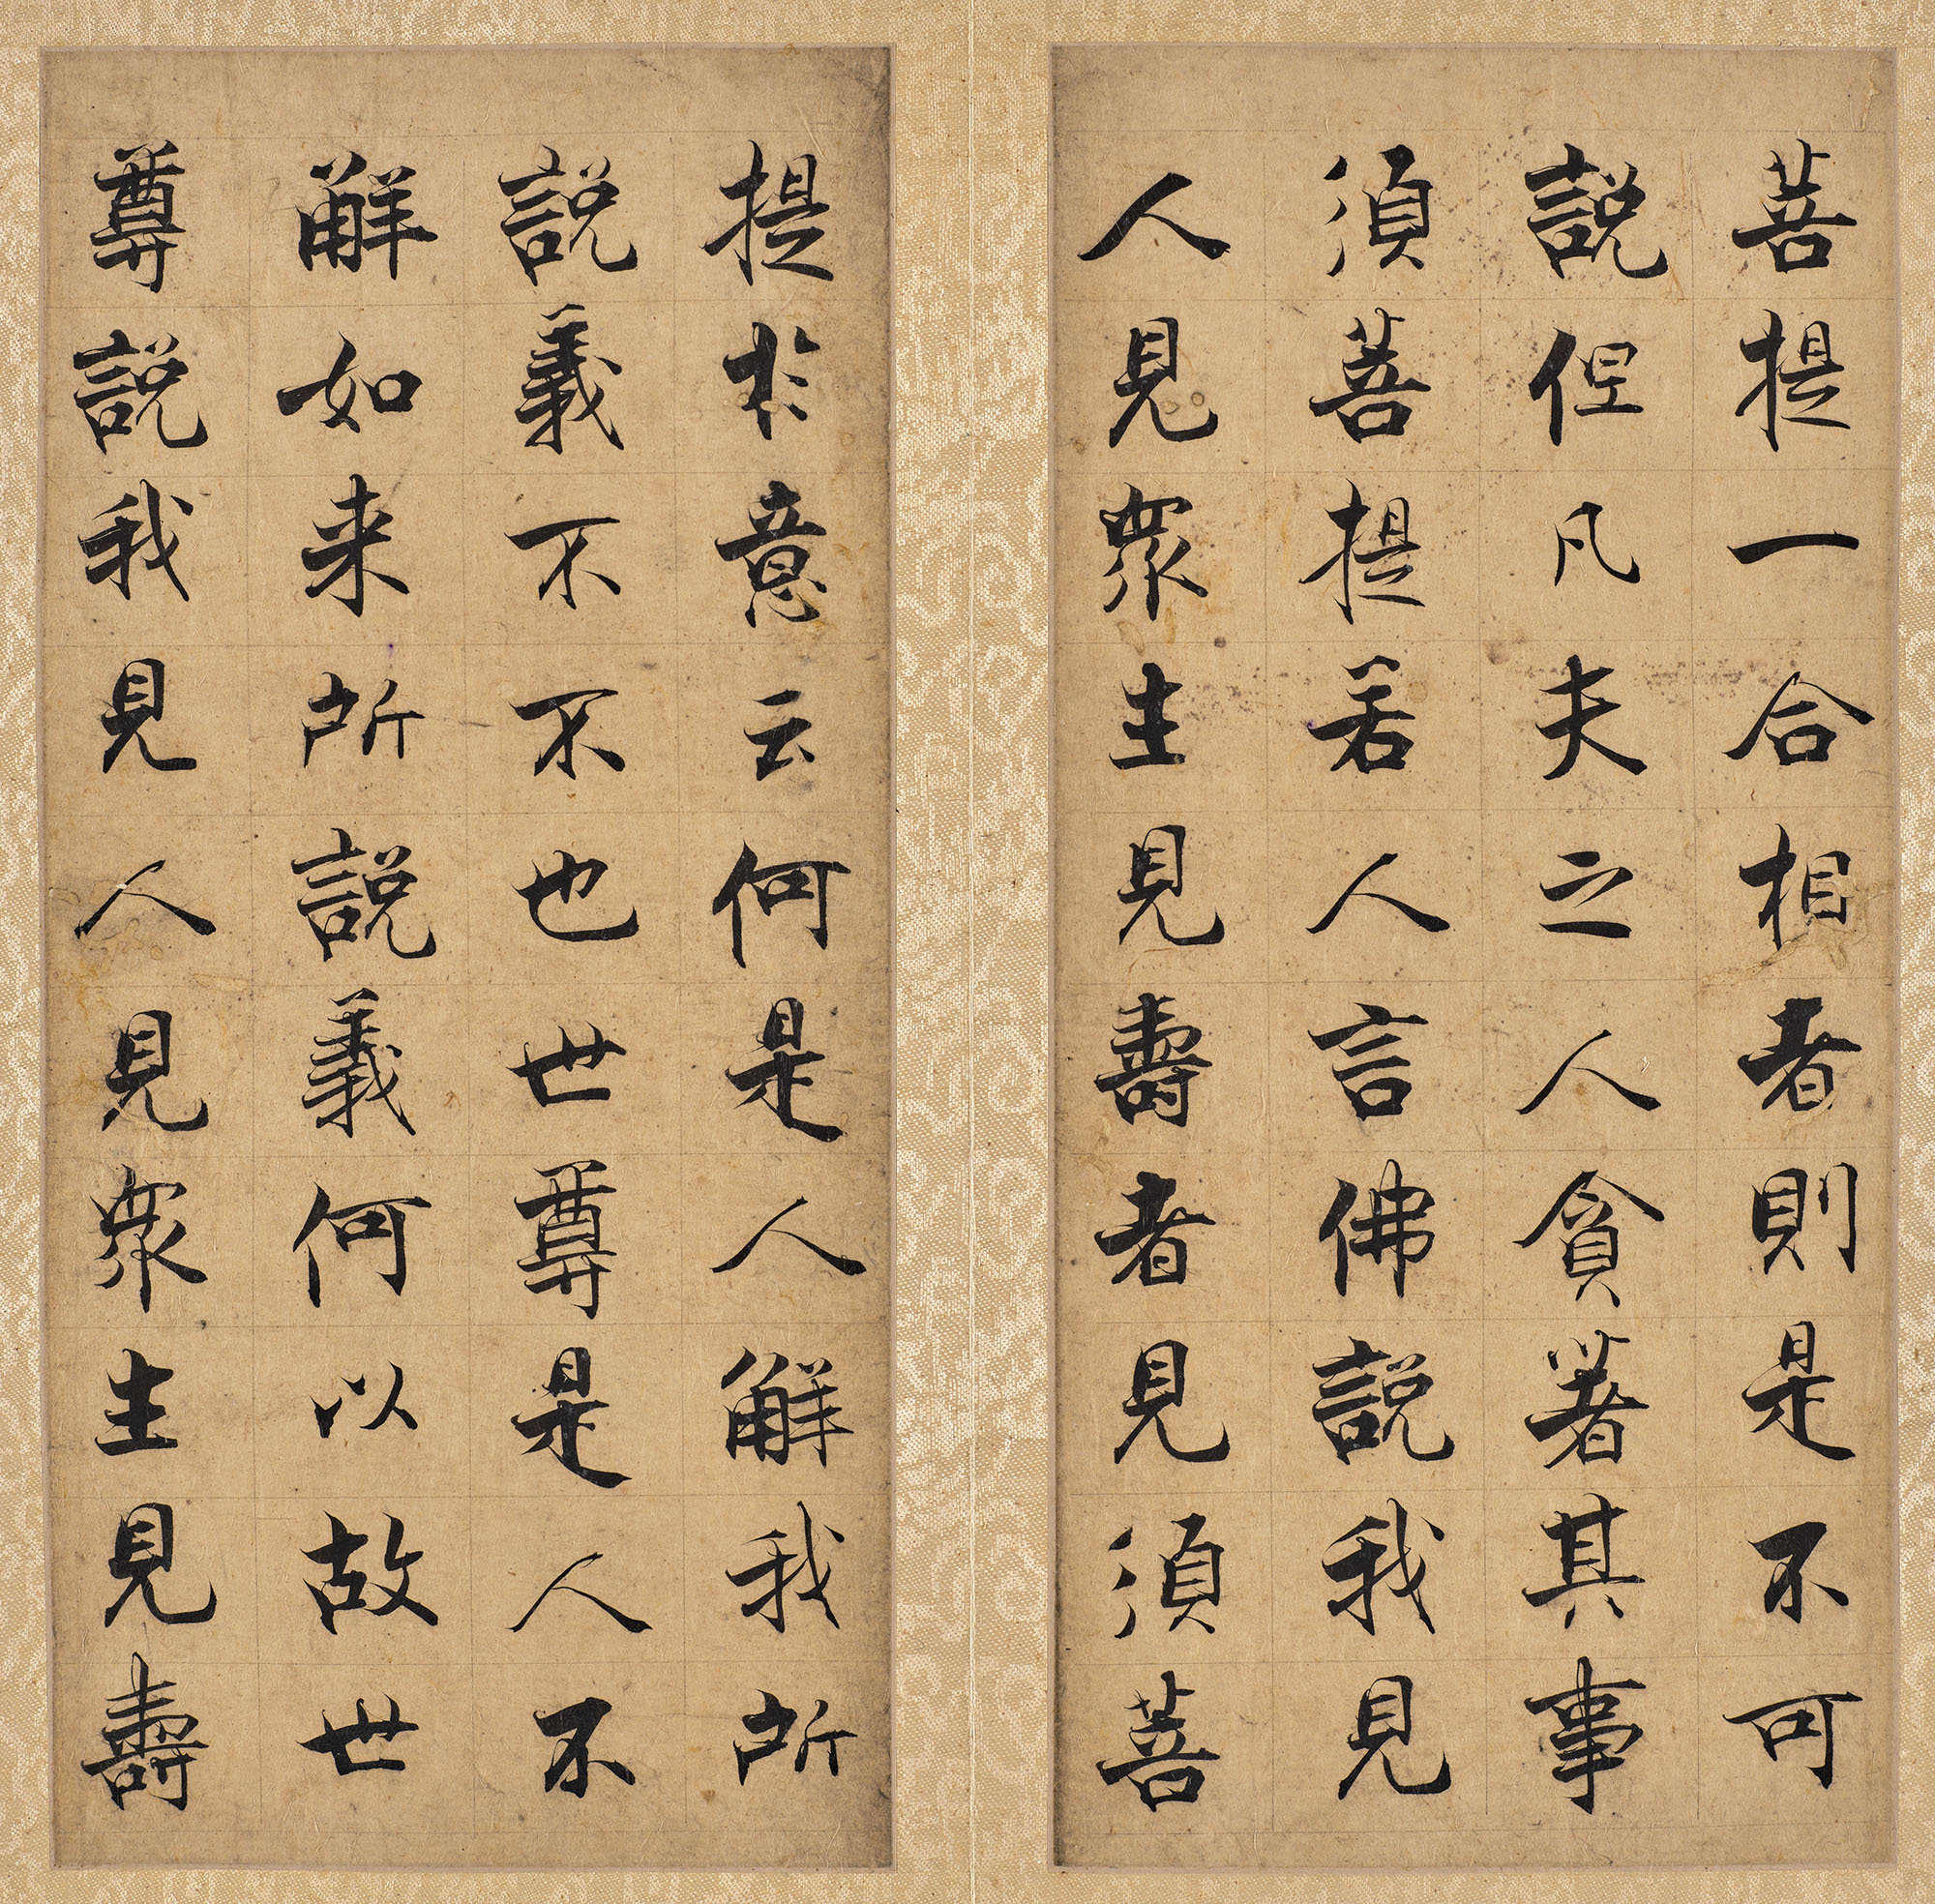 菩提一合相者則是不可
説但凡夫之人貪著其事
須菩提若人言佛説我見
人見衆生見壽者見須菩
提於意云何是人解我所
説義不不也世尊是人不
解如来所説義何以故世
尊説我見人見衆生見壽